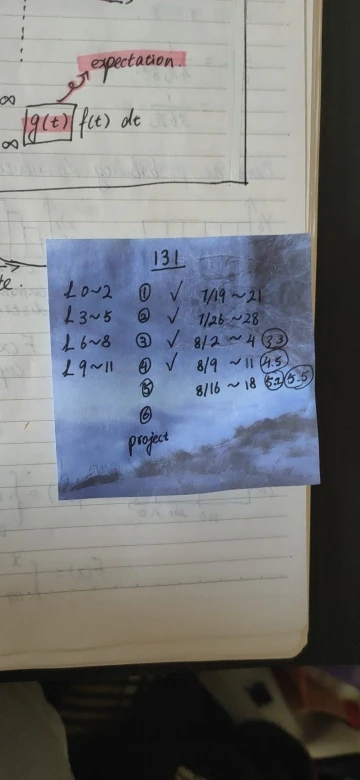 expectation.
∞
∞ g(t) f(t) dt
te.
131
L 0~2 ① ✓ 7/19 ~ 21
L 3~5 ② ✓ 7/26 ~ 28
L 6~8 ③ ✓ 8/2 ~ 4 3.3
L 9~11 ④ ✓ 8/9 ~ 11 4.5
⑤ 8/16 ~ 18 5.2 5.5
⑥
project